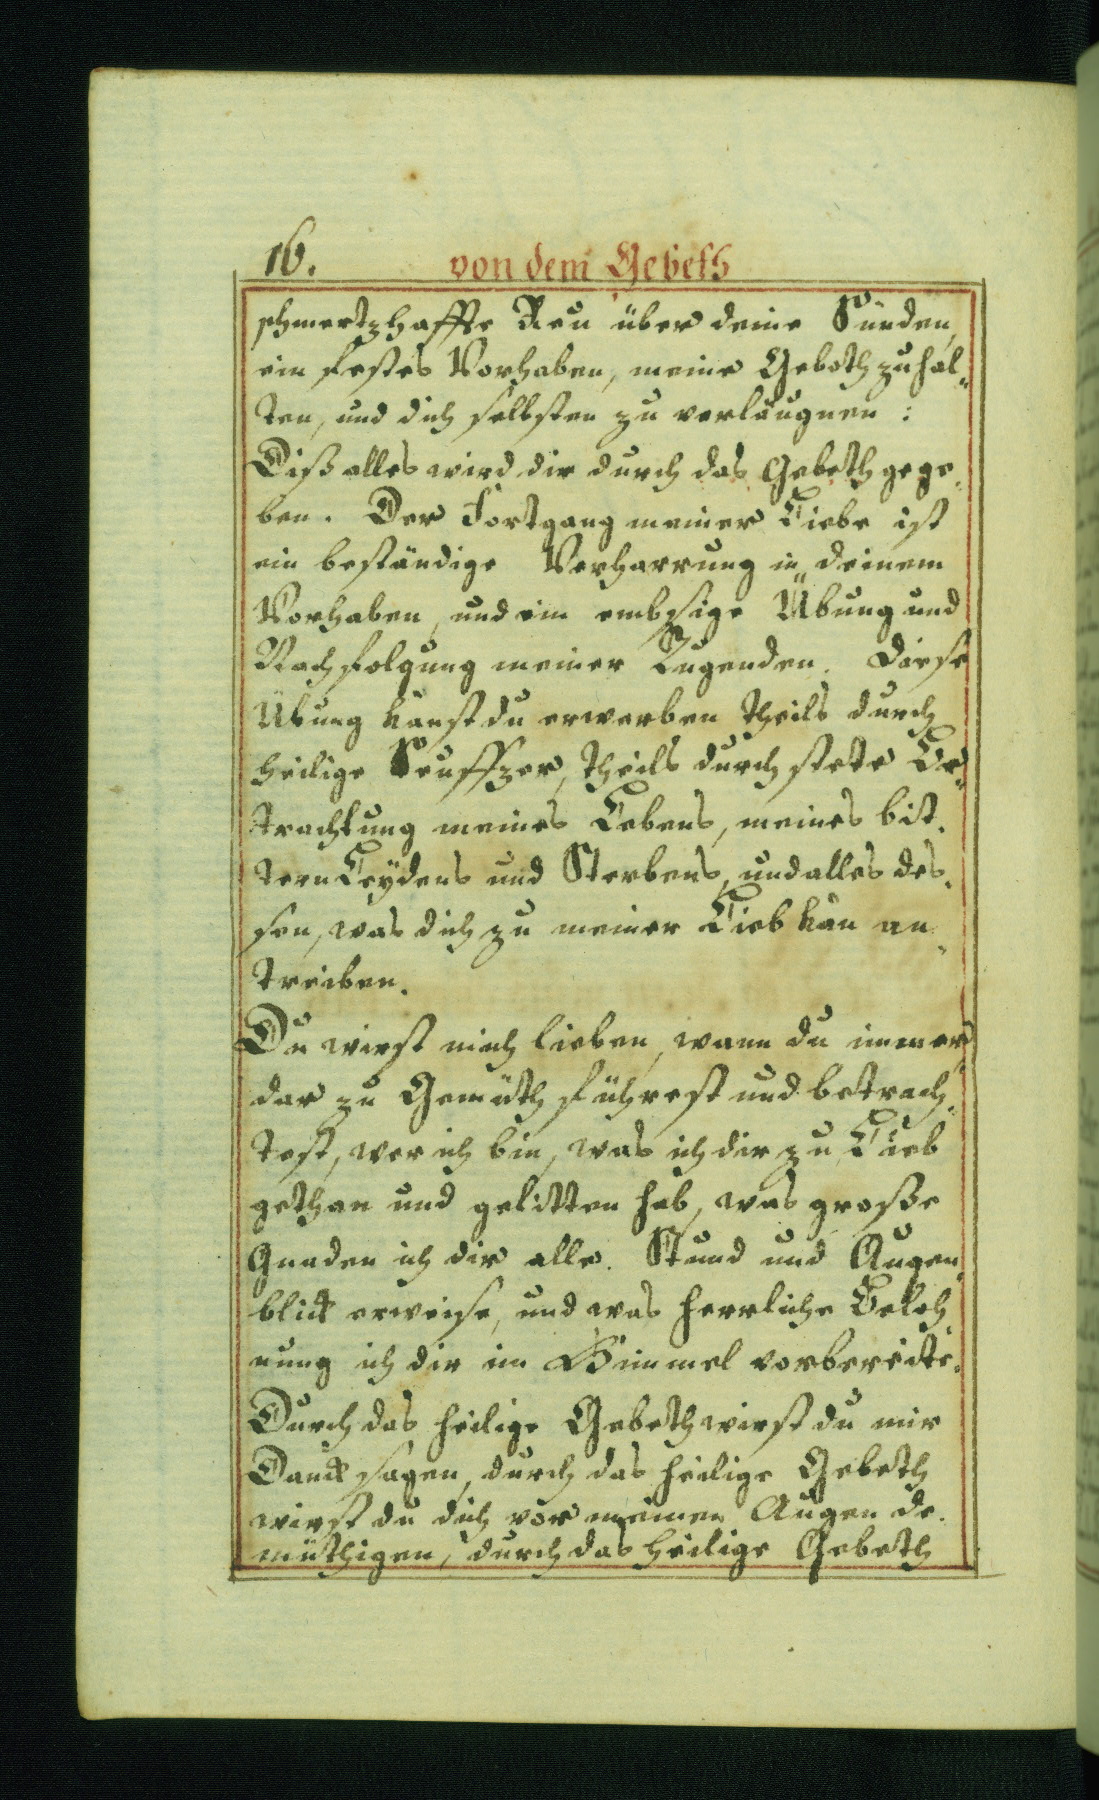 16. von dem Gebeth
schmertzhaffte Reu über deine Sünden,
ein festes Vorhaben, meine Geboth zu hal"
ten, und dich selbsten zu verläugnen:
Diß alles wird dir durch das Gebeth gege„
ben. Der Fortgang meiner Liebe ist
ein beständige Verharrung in deinem
Vorhaben, und ein embsige Übung und
Nachfolgung meiner Tugenden. Diese
Übung kanst du erwerben theils durch
heilige Seuffzer, theils durch stete Be„
trachtung meines Lebens, meines bit„
tern Leÿdens und Sterbens, und alles des„
sen, was dich zu meiner Lieb kan an„
treiben.
Du wirst mich lieben, wann du immer„
dar zu Gemüth führest und betrach„
test, wer ich bin, was ich dir zu Lieb
gethan und gelitten hab, was große
Gnaden ich dir alle Stund und Augen„
blick erweise, und was herrliche Beloh„
nung ich dir im Himmel vorbereite.
Durch das heilige Gebeth wirst du mir
Danck sagen, durch das heilige Gebeth
wirst du dich vor meinen Augen de„
müthigen, durch das heilige Gebeth